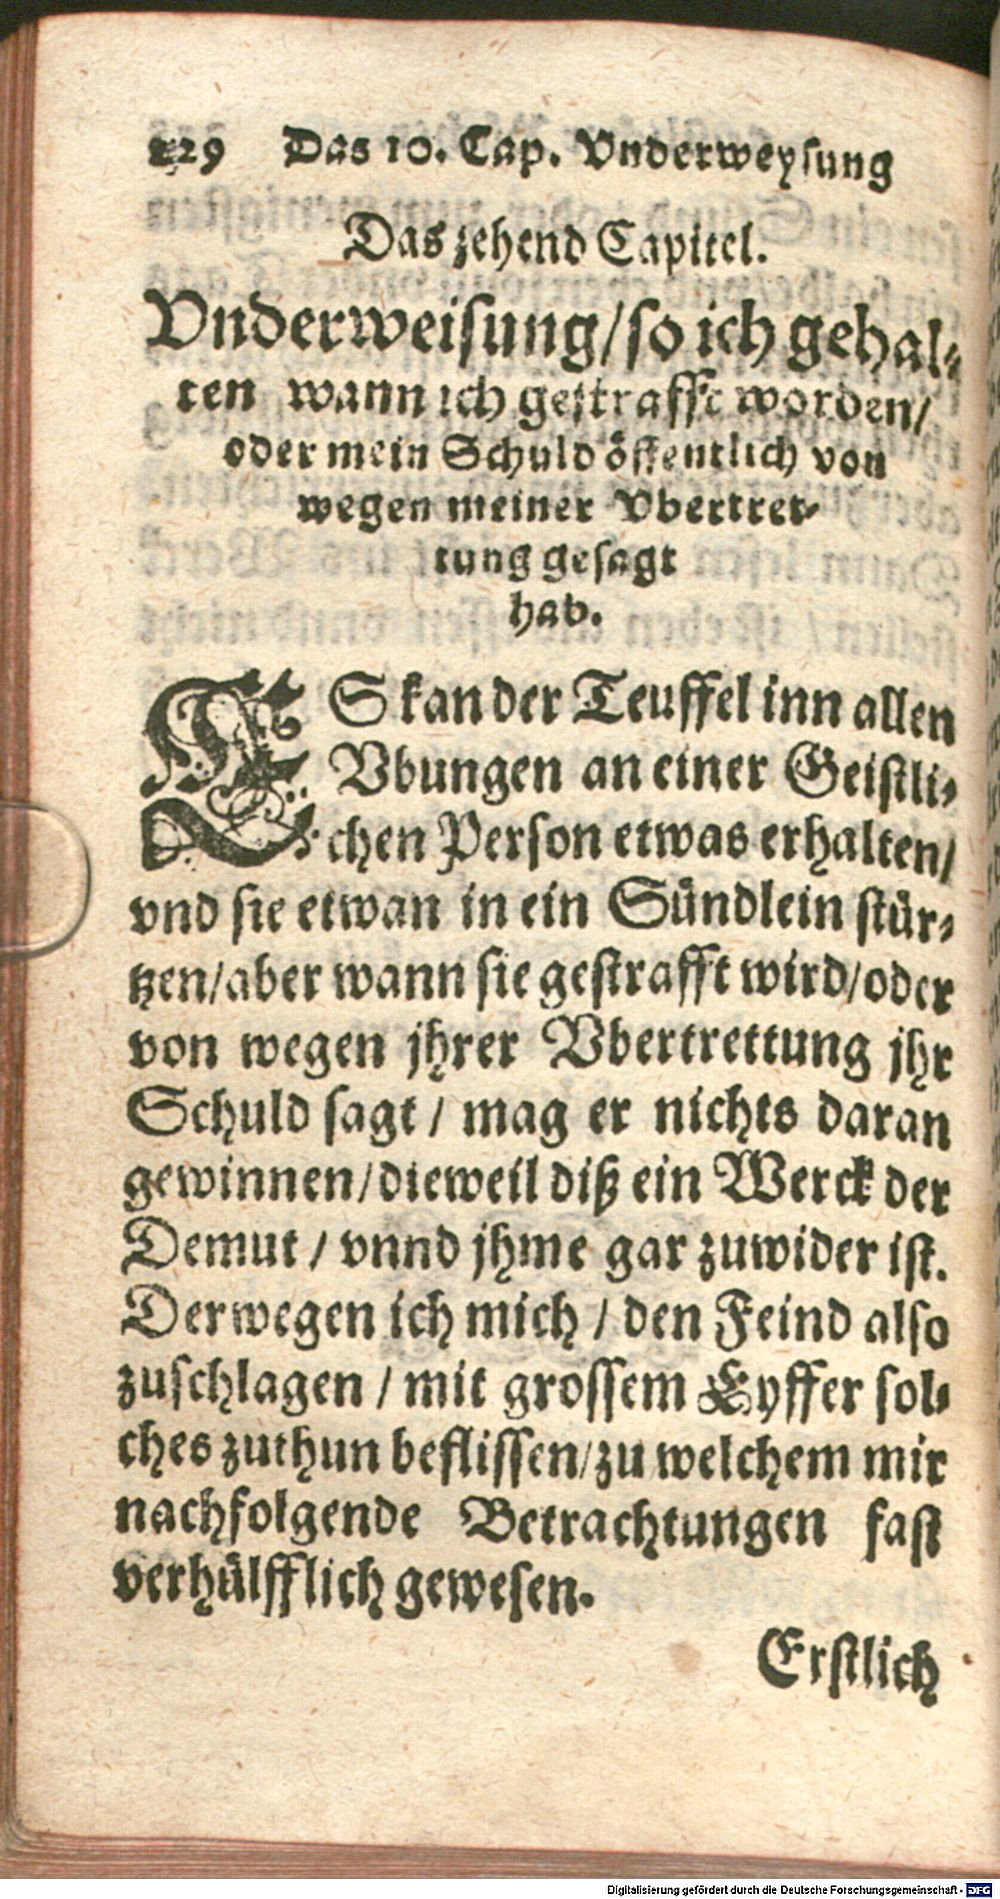 229 Das 10. Cap. Vnderweysung
Das zehend Capitel.
Vnderweisung/so ich gehal-
ten wann ich gestrafft worden/
oder mein Schuld öffentlich von
wegen meiner Vbertret-
tung gesagt
hab.
ES kan der Teuffel inn allen
Vbungen an einer Geistli-
chen Person etwas erhalten/
vnd sie etwan in ein Sündlein stür-
tzen/aber wann sie gestrafft wird/oder
von wegen jhrer Vbertrettung jhr
Schuld sagt / mag er nichts daran
gewinnen/dieweil diß ein Werck der
Demut / vnnd jhme gar zuwider ist.
Derwegen ich mich / den Feind also
zuschlagen / mit grossem Eyffer sol-
ches zuthun beflissen/zu welchem mir
nachfolgende Betrachtungen fast
verhülfflich gewesen.
Erstlich
Digitalisierung gefördert durch die Deutsche Forschungsgemeinschaft - DFG